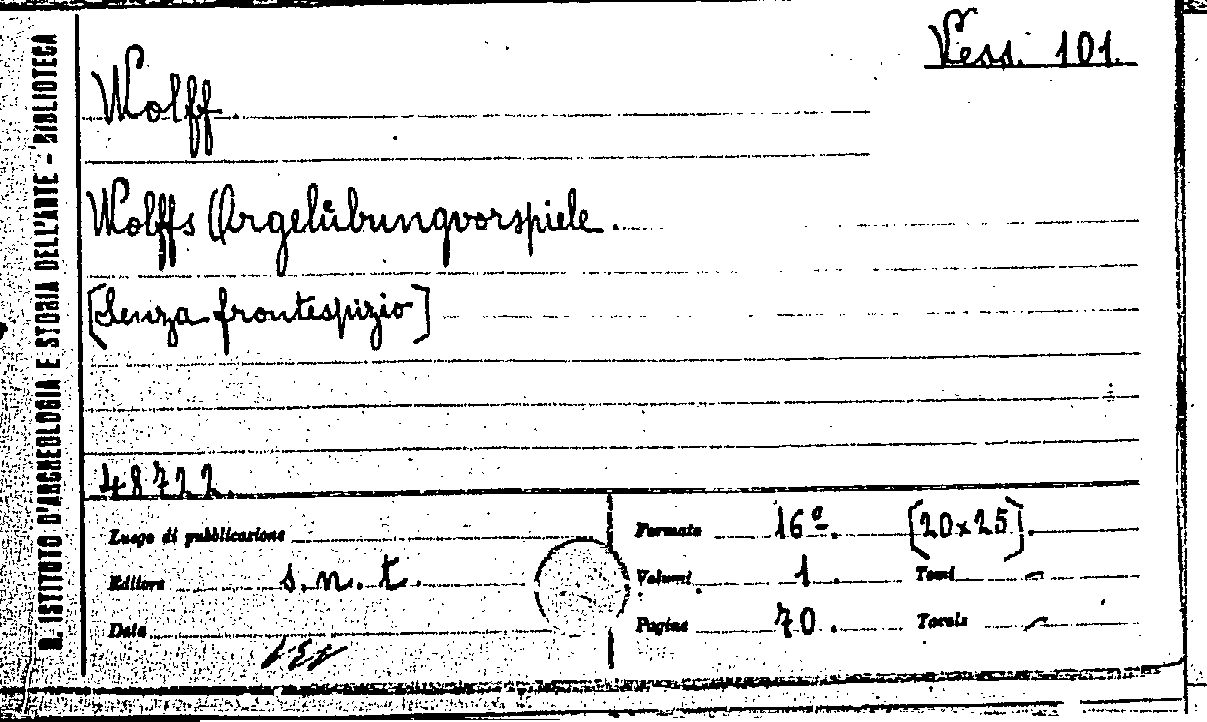 Vess. 101.
Wolff.
Wolffs Orgelübungvorspiele.
[Senza frontespizio]
48722.
R. ISTITUTO D'ARCHEOLOGIA E STORIA DELL'ARTE - BIBLIOTECA
Luogo di pubblicazione
Formato 16º. [20x25].
Editore s. n. t.
Volumi 1. Tomi –
Data
Pagine 70. Tavole –